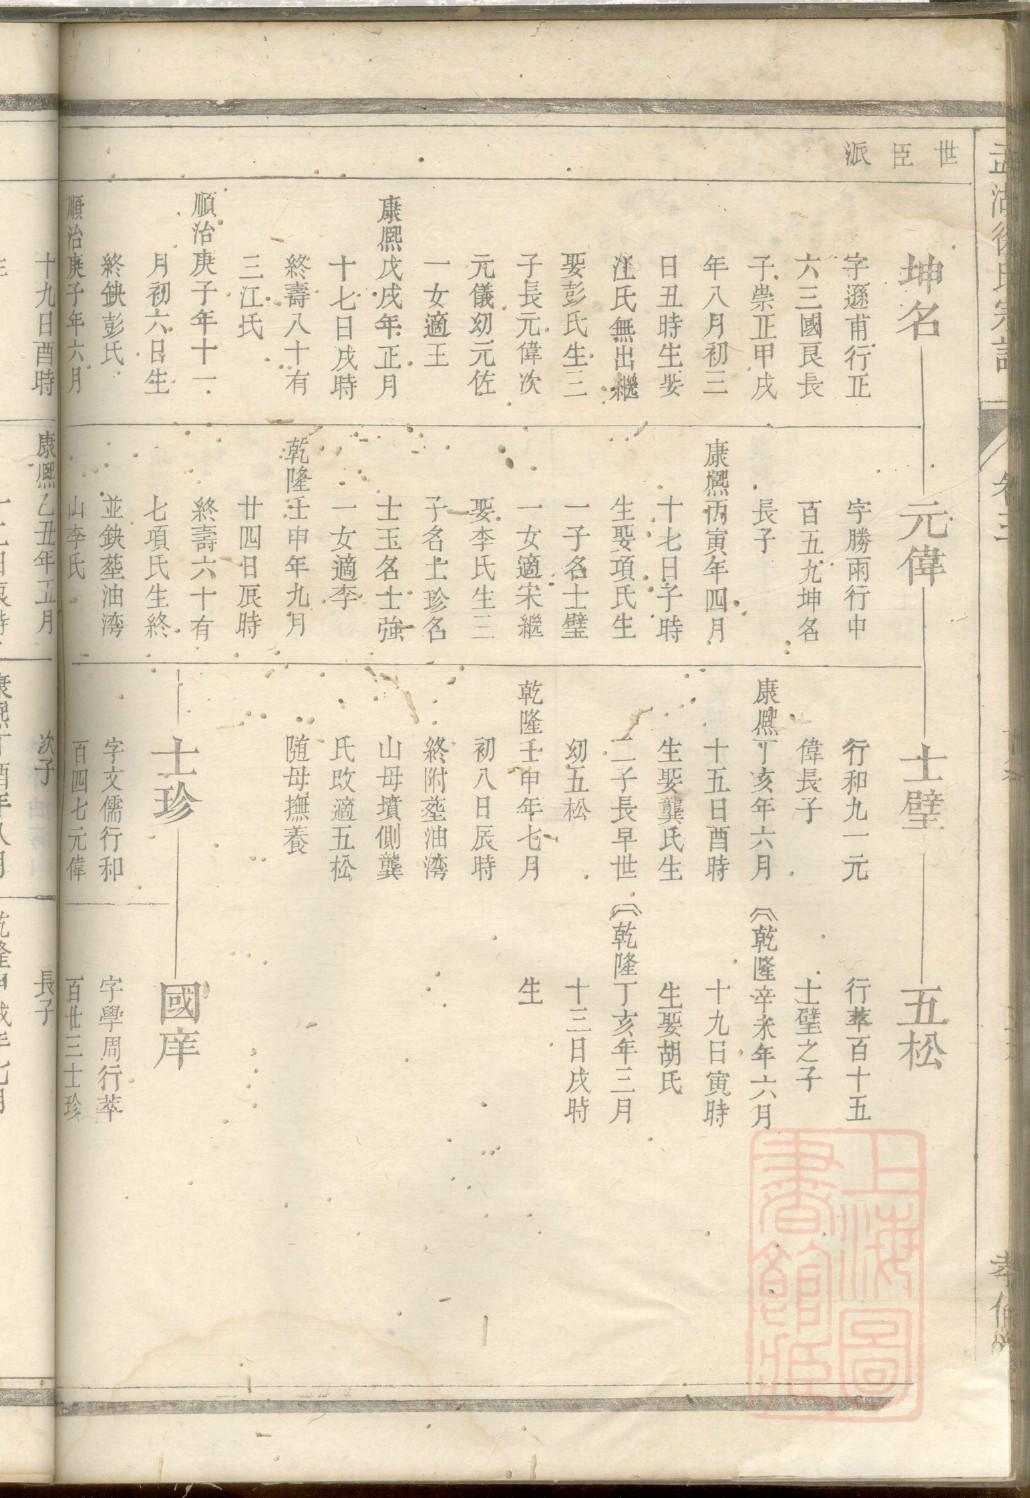 世臣派
坤名
字遜甫行正
六三國艮長
子崇正甲戌
年八月初三
日丑時生娶
汪氏無出繼
娶彭氏生三
子長元偉次
元儀幼元佐
一女適王
康熙戊戌年正月
十七日戌時
終壽八十有
三江氏
順治庚子年十一
月初六日生
終缺彭氏
順治庚子年六月
十九日酉時
元偉
字勝雨行中
百五九坤名
長子
康熙丙寅年四月
十七日子時
生娶項氏生
一子名士璧
一女適宋繼
娶李氏生二
子名士珍名
士玉名士強
一女適李
乾隆壬申年九月
廿四日辰時
終壽六十有
七項氏生終
並缺塟油湾
山李氏
康熙乙丑年五月
士璧
行和九一元
偉長子
康熙丁亥年六月
十五日酉時
生娶龔氏生
二子長早世
幼五松
乾隆壬申年七月
初八日辰時
終附塟油湾
山母墳側龔
氏改適五松
随母撫養
士珍
字文儒行和
百四七元偉
次子
五松
行萃百十五
士璧之子
乾隆辛未年六月
十九日寅時
生娶胡氏
乾隆丁亥年三月
十三日戌時
生
國庠
字學周行萃
百廿三士珍
長子
上海圖
書館藏